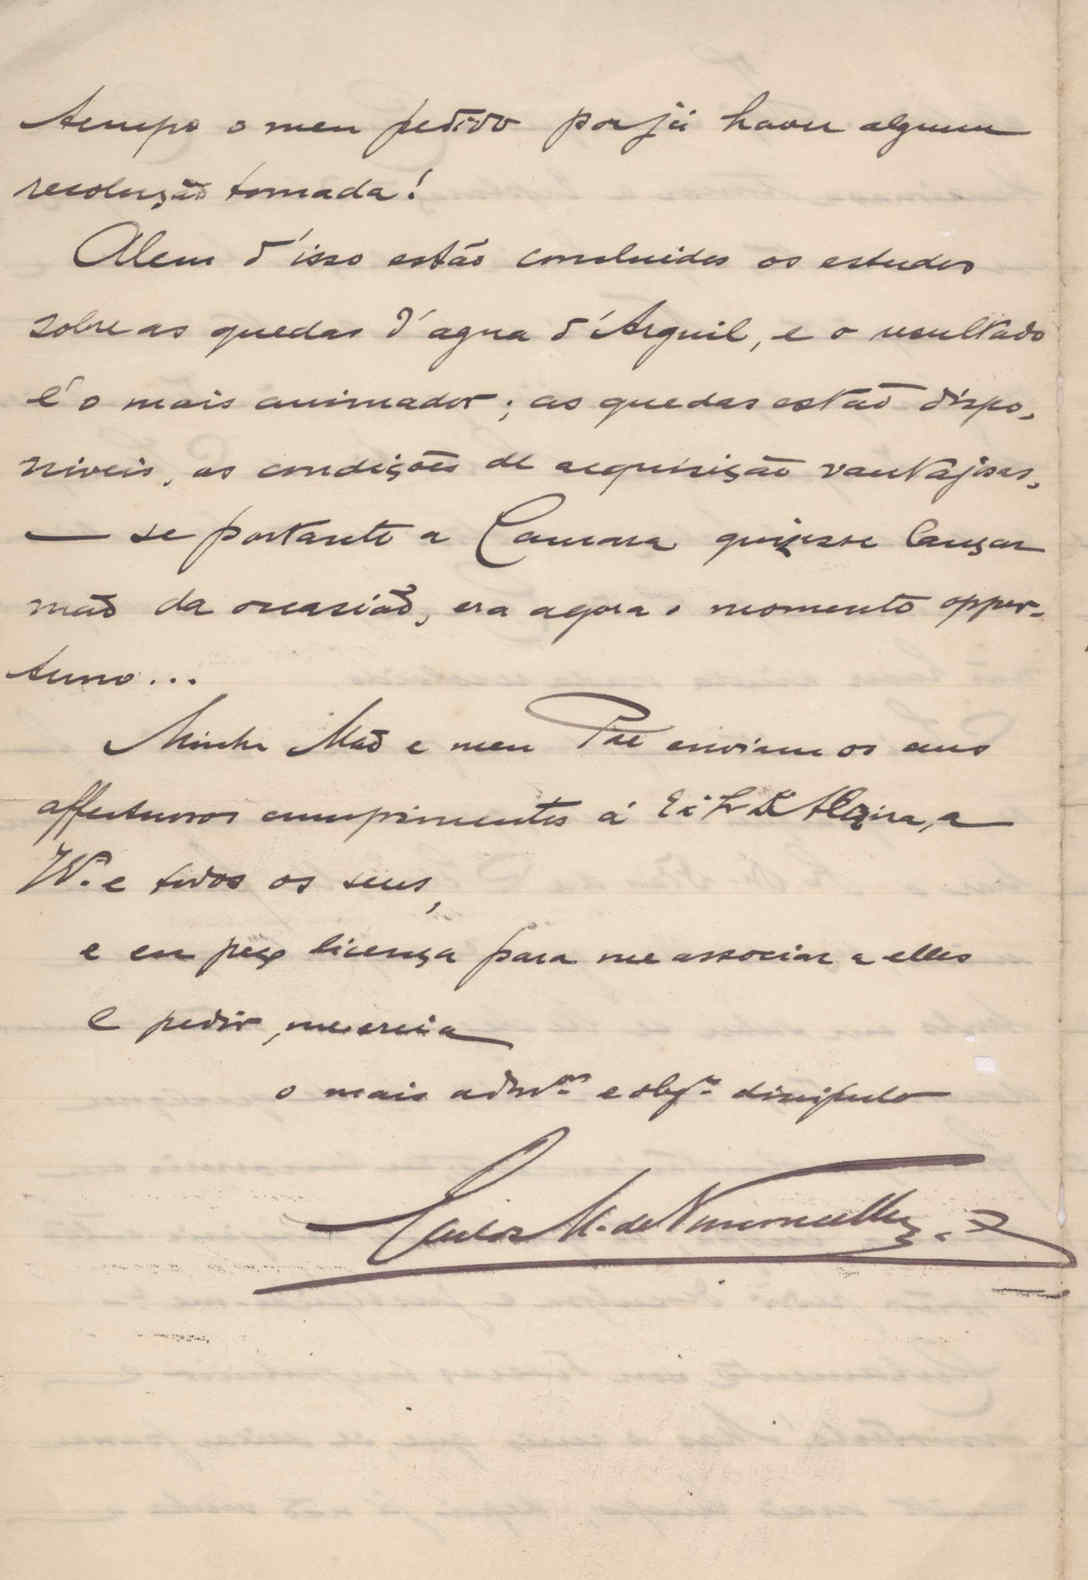 tempo o meu pedido por já haver alguma
resolução tomada!
Alem d'isso estão concluidos os estudos
sobre as quedas d'agua d'Arguil, e o resultado
é o mais animador; as quedas estão dispo-
niveis, as condições de acquisição vantajosas,
— se portanto a Camara quizesse lançar
mão da occasião, era agora o momento oppor-
tuno...
Minha Mãe e meu Pae enviam os seus
affectuosos cumprimentos á
V. e todos os seus,
e eu peço licença para me associar a elles
e pedir, me creia
o mais adm.or e obg.do discipulo
Carlos M. de Vasconcellos